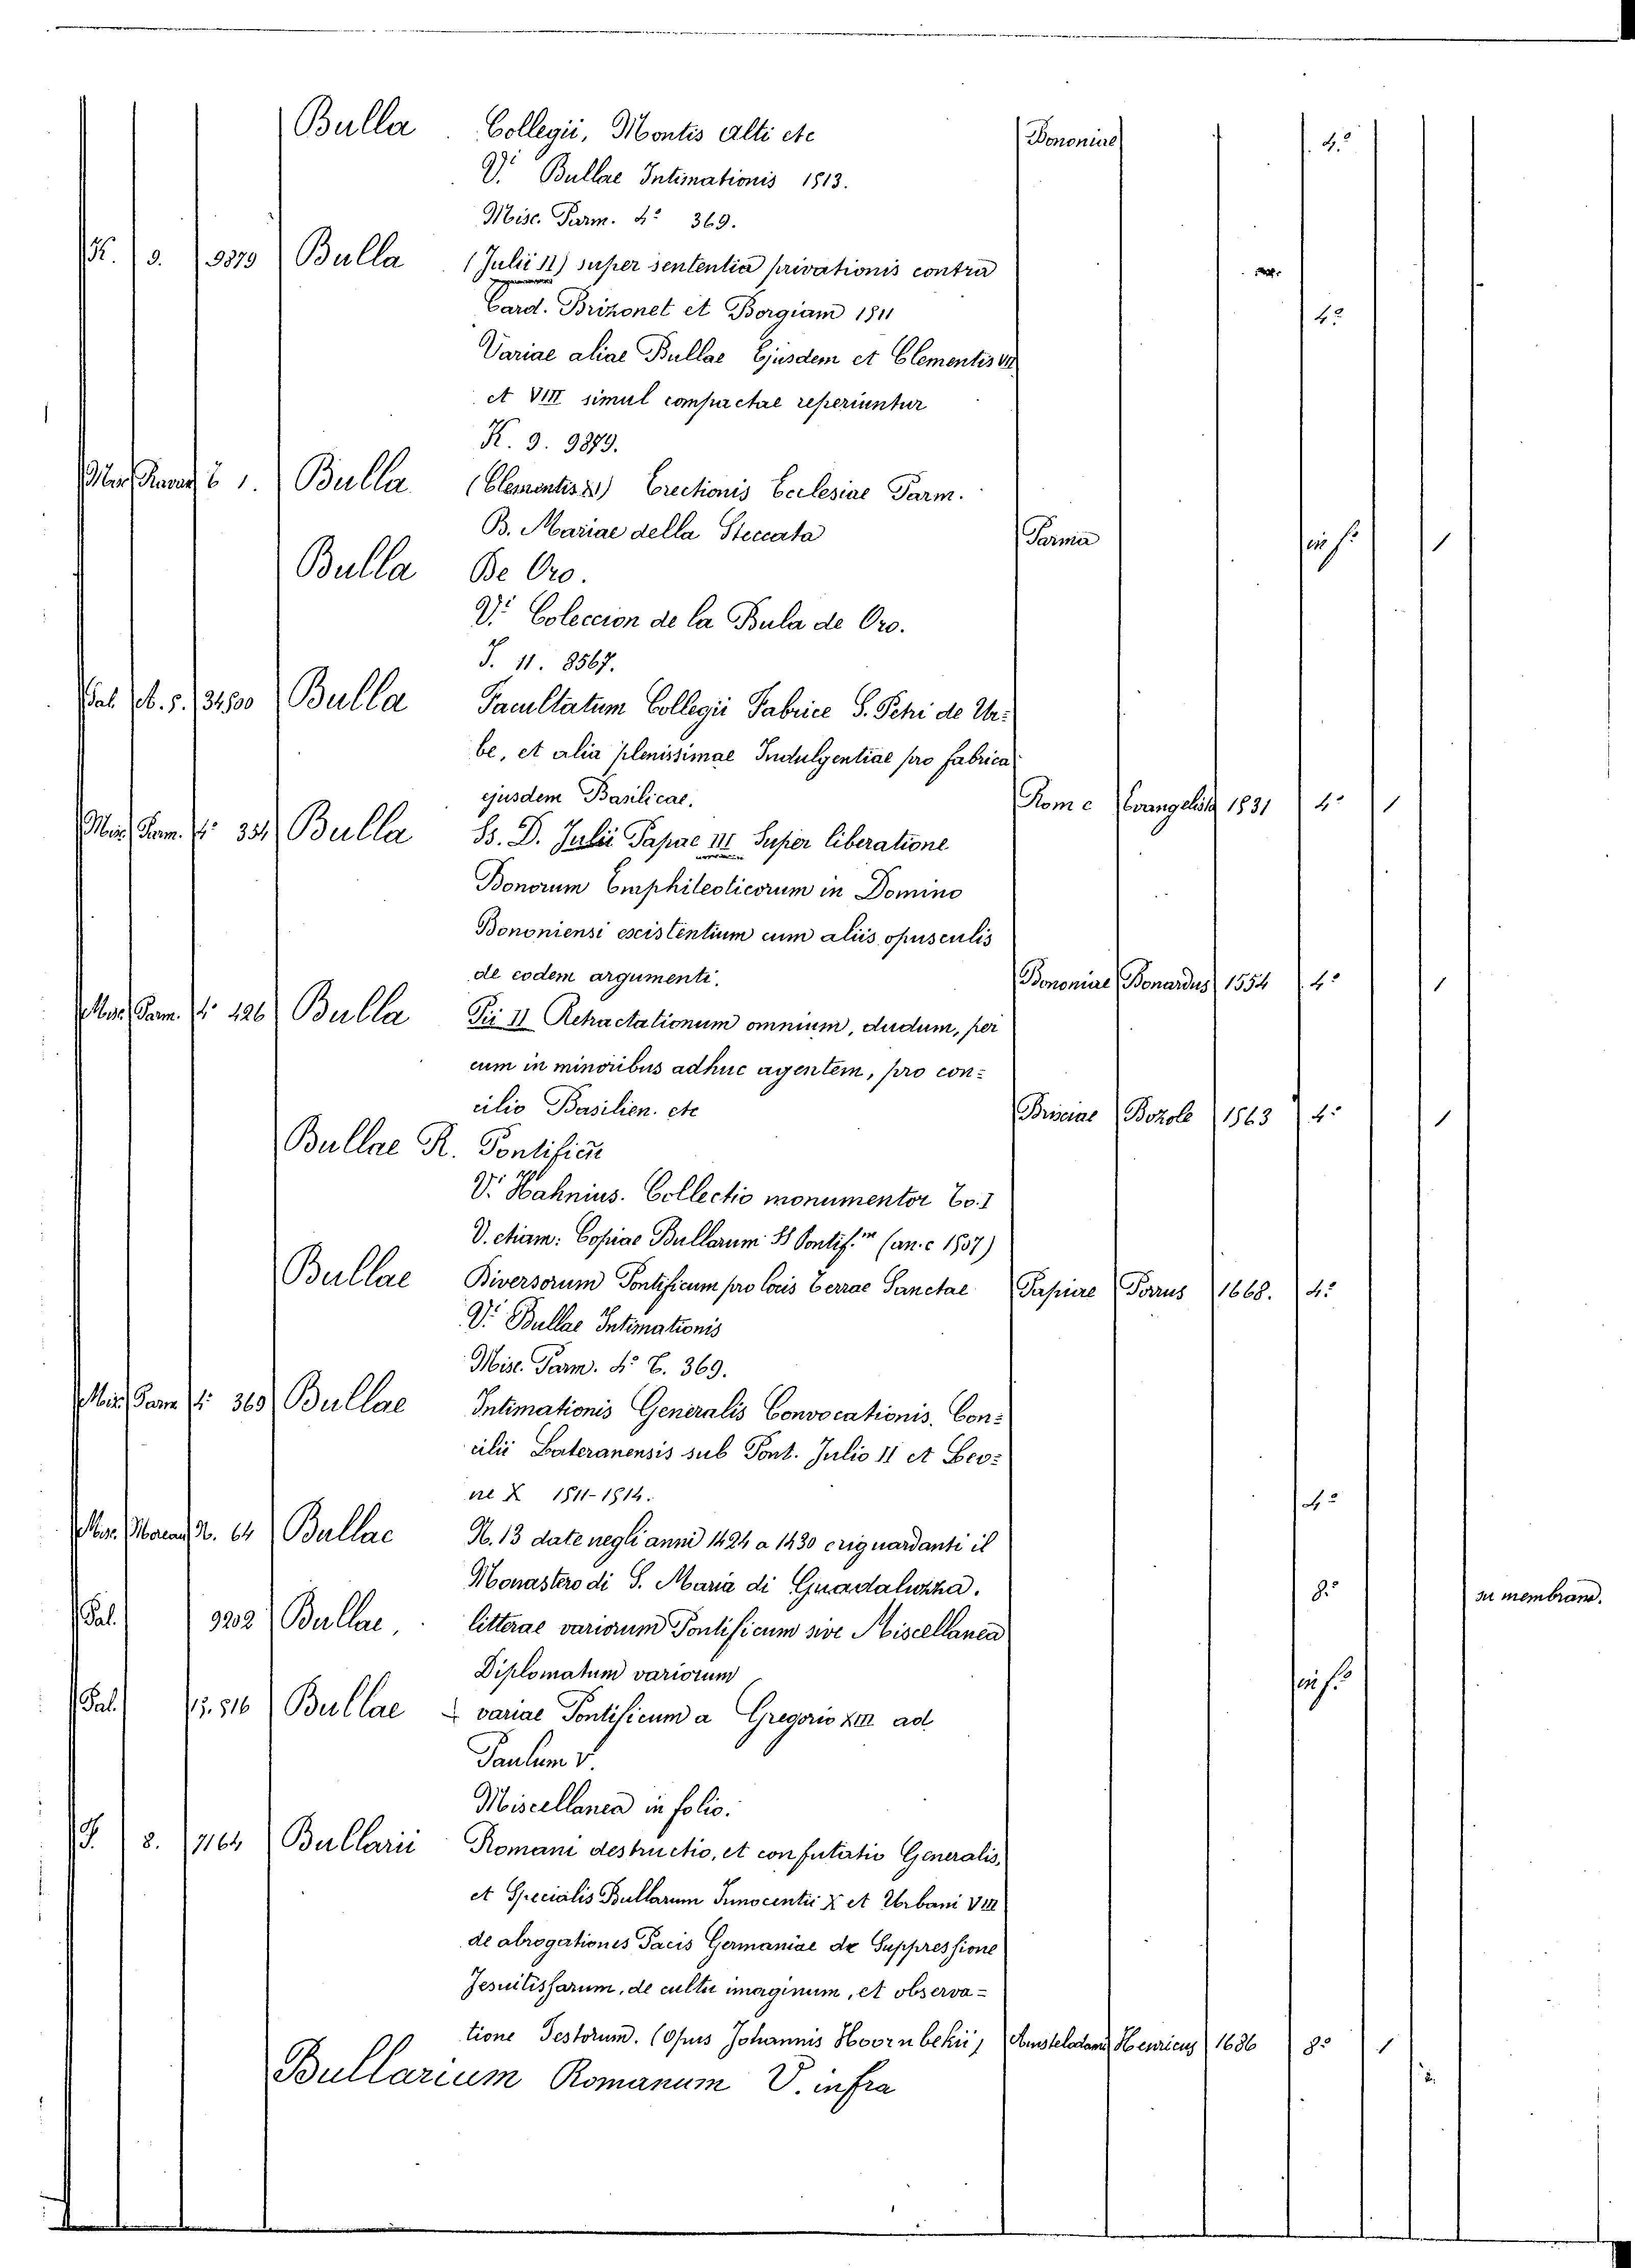 Bulla Collegii, Montis Alti etc Bononiae 4.º
V.i Bullae Intimationis 1513.
Misc. Parm. 4.º 369.
K. 9. 9879 Bulla (Julii II) super sententia privationis contra
Card. Brizonet et Borgiam 1511 4.º
Variae aliae Bullae Ejusdem et Clementis VII
et VIII simul compactae reperiuntur
K. 9. 9879.
6 1. Bulla (Clementis XI) Erectionis Ecclesiae Parm.
B. Mariae della Steccata Parma in f.º 1
Bulla De Oro.
V.i Coleccion de la Bula de Oro.
S. 11. 8567.
Pal. b. 5. 34500 Bulla Facultatum Collegii Fabrice S. Petri de Ur=
be, et alia plenissimae Indulgentiae pro fabrica
ejusdem Basilicae. Rome Evangelista 1531 4.º 1
Misc. Parm. 4.º 354 Bulla Ss. D. Julii Papae III Super liberatione
Bonorum Emphiteoticorum in Domino
Bononiensi existentium cum aliis opusculis
de eodem argumenti. Bononiae Bonardus 1554 4.º 1
Misc. Parm. 4.º 426 Bulla Pii II Retractationum omnium, dudum, per
eum in minoribus adhuc agentem, pro con=
cilio Basilien. etc Brisciae Bozole 1563 4.º 1
Bullae R. Pontificu
V.i Hahnius. Collectio monumentor To. I
V. etiam: Copiae Bullarum SS Pontif.m (an. c 1507)
Bullae Diversorum Pontificum pro locis Terrae Sanctae Papiae Porrus 1668. 4.º
V.i Bullae Intimationis
Misc. Parm. 4.º T. 369.
Misc. Parm 4.º 369 Bullae Intimationis Generalis Convocationis. Con=
cilii Lateranensis sub Pont. Julio II et Leo=
ne X 1511-1514. 4.º
Misc. N. 64 Bullae N. 13 date negli anni 1424 a 1430 e riguardanti il
Monastero di S. Maria di Guadaluzza. 8.º in membran.
Pal. 9202 Bullae, litterae variorum Pontificum sive Miscellanea
Diplomatum variorum in f.º
Pal. 15.516 Bullae variae Pontificum a Gregorio XIII ad
Paulum V.
Miscellanea in folio.
F. 8. 7164 Bullarii Romani destructio, et confutatio Generalis,
et Specialis Bullarum Innocentii X et Urbani VIII
de abrogationes Pacis Germaniae de Suppressione
Jesuitissarum, de cultu imaginum, et observa=
tione Festorum. (Opus Johannis Hoornbekii) Amstelodami Henricus 1686 8.º 1
Bullarium Romanum V. infra